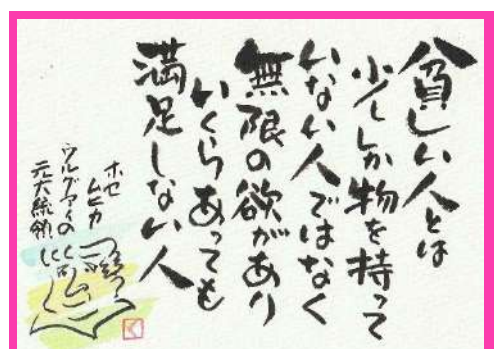 貧しい人とは
少ししか物を持って
いない人ではなく
無限の欲があり
いくらあっても
満足しない人
ホセ
ムヒカ
ウルグアイの
元大統領